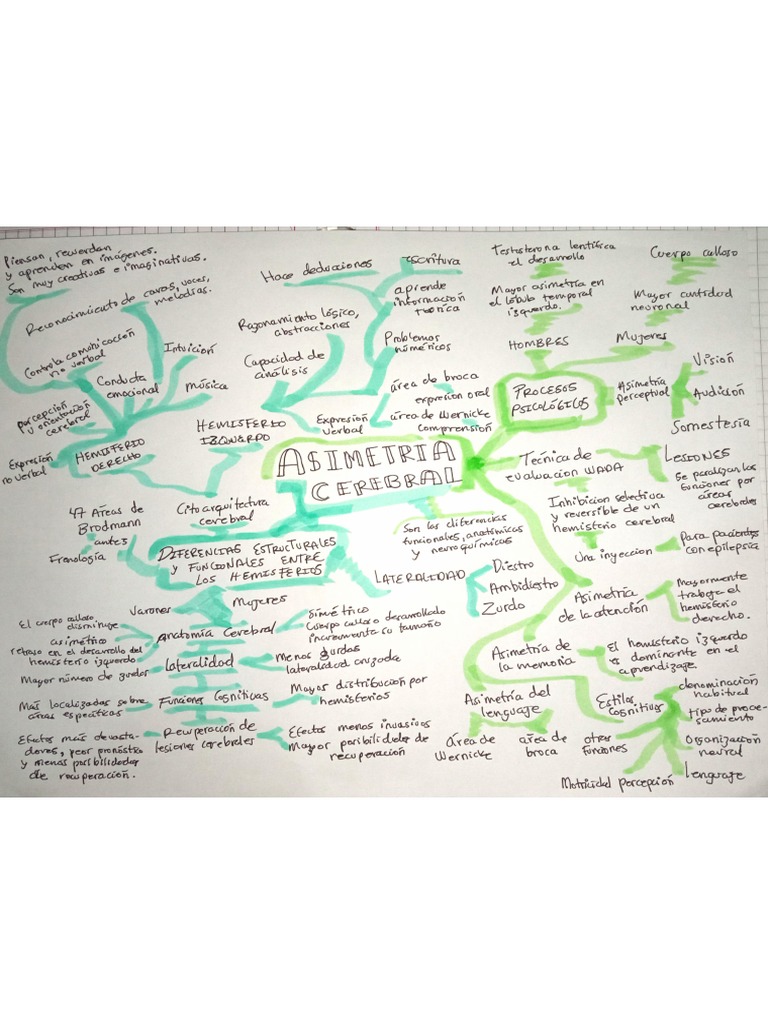 Piensan, recuerdan
y aprenden en imágenes.
Son muy creativas e imaginativas.
Reconocimiento de caras, voces,
melodías.
Controla comunicación
no verbal
Intuición
Conducta
emocional
Música
percepción
y orientación
cerebral
Expresión
no verbal
HEMISFERIO
DERECHO
Hace deducciones
escritura
aprende
información
teorica
Razonamiento lógico,
abstracciones
Problemas
numéricos
Capacidad de
análisis
HEMISFERIO
IZQUIERDO
Expresión
verbal
área de broca
expresión oral
área de Wernicke
comprensión
Testosterona lentifica
el desarrollo
Mayor asimetría en
el lóbulo temporal
izquierdo.
HOMBRES
Cuerpo calloso
Mayor cantidad
neuronal
Mujeres
PROCESOS
PSICOLÓGICOS
Asimetría
perceptual
Visión
Audición
Somestesia
ASIMETRIA
CEREBRAL
Son las diferencias
funcionales, anatómicas
y neuroquímicos
Técnica de
evaluacion WADA
LESIONES
Se paralizan las
funciones por
áreas
cerebrales
Inhibicion selectiva
y reversible de un
hemisterio cerebral
Una inyeccion
Para pacientes
con epilepsia
47 Áreas de
Brodmann
antes
Frenología
Citoarquitectura
cerebral
DIFERENCIAS ESTRUCTURALES
Y FUNCIONALES ENTRE
LOS HEMISFERIOS
LATERALIDAD
Diestro
Ambidiestro
Zurdo
Asimetría
de la atención
Mayormente
trabaja el
hemisterio
derecho.
Varones
Mujeres
El cuerpo calloso
disminuye
asimético
retaso en el desarrollo del
hemisterio izquerdo
Anatomía Cerebral
Simético
Cuerpo calloso desarrollado
incrementa su tamaño
Mayor número de zurdos
Lateralidad
Menos zurdas
lateralidad cruzada
Más localizadas sobre
áreas específicas
Funciones Cognitivas
Mayor distribución por
hemisferios
Efectos más devasta-
dores, peor pronóstico
y menos posibilidades
de recuperación.
Recuperación de
lesiones cerebrales
Efectos menos invasivos
Mayor posibilidades de
recuperación
Asimetría de
la memoria
El hemisterio izquerdo
es dominante en el
aprendizaje.
Asimetría del
lenguaje
Área de
Wernicke
área de
broca
Estilos
Cognitivos
denominación
habitual
tipo de proce-
samiento
Organización
neural
Lenguaje
otras
funciones
Motricidad percepción